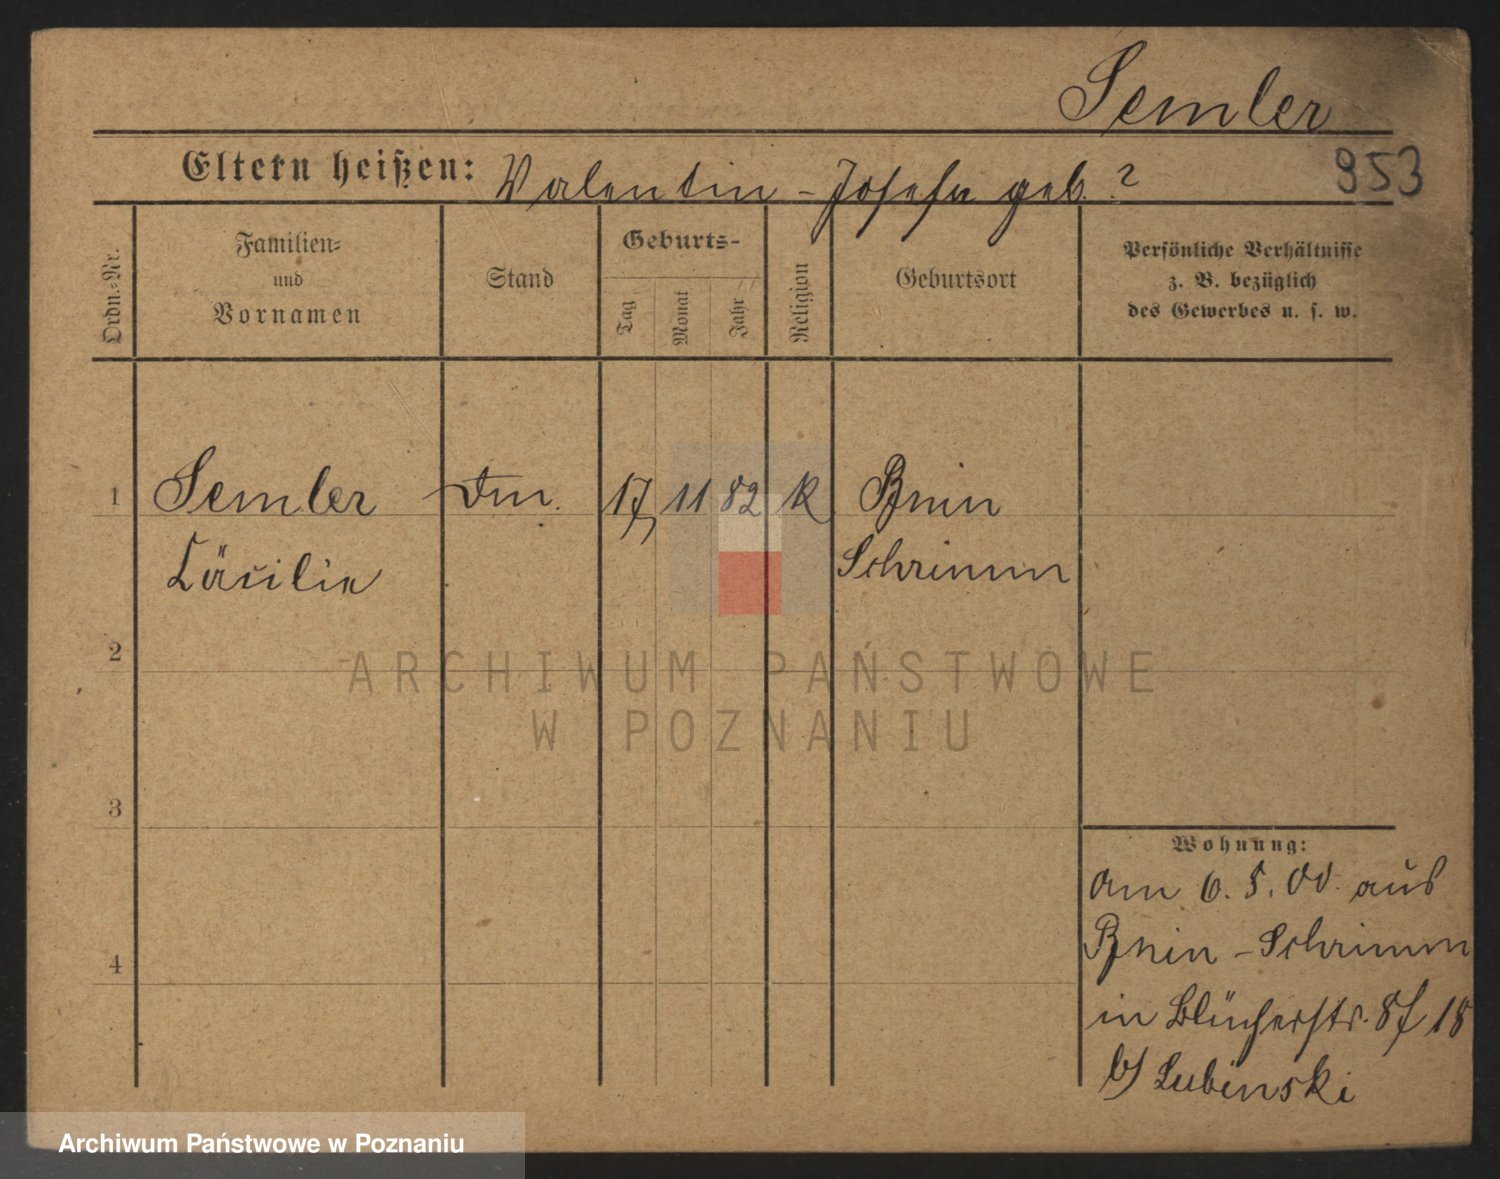 Semler
Eltern heißen: Valentin - Josefa geb. ?
953
Ordn.-Nr.
Familien-
und
Vornamen
Stand
Geburts-
Tag
Monat
Jahr
Religion
Geburtsort
Persönliche Verhältnisse
z. B. bezüglich
des Gewerbes u. s. w.
1 Semler 17 11 82 k Bnin
Cäcilie Schrimm
2
ARCHIWUM PAŃSTWOWE
W POZNANIU
3
Wohnung:
am 6.5.00. aus
Bnin - Schrimm
in Blücherstr. 18
b/ Lubinski
4
Archiwum Państwowe w Poznaniu